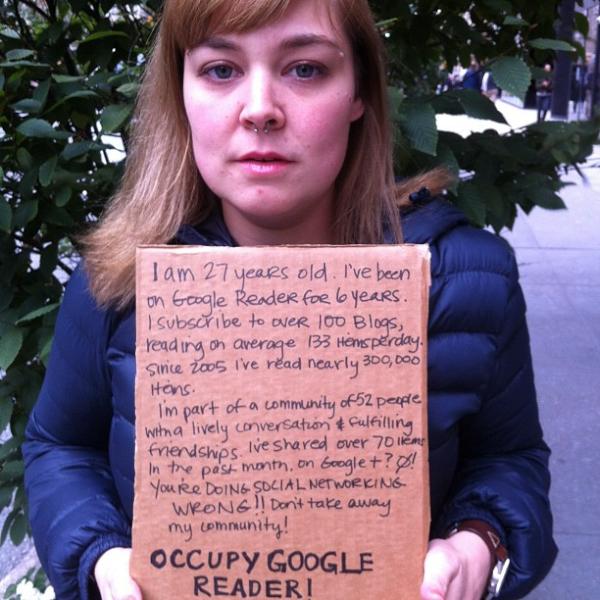 I am 27 years old. I've been
on Google Reader for 6 years.
I subscribe to over 100 Blogs,
reading on average 133 items per day.
Since 2005 I've read nearly 300,000
items.
I'm part of a community of 52 people
with a lively conversation & fulfilling
friendships. I've shared over 70 items
In the past month, on Google+? Ø!
You're DOING SOCIAL NETWORKING
WRONG!! Don't take away
my community!
OCCUPY GOOGLE
READER!